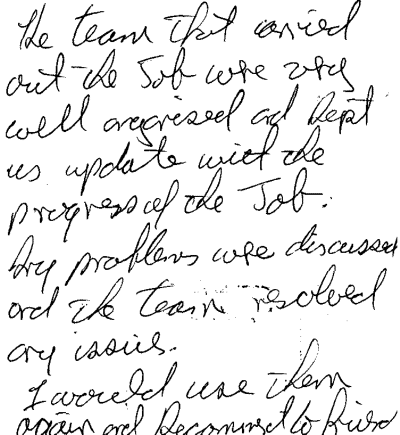 The team that carried
out the Job were very
well organised and kept
us update with the
progress of the Job.
Any problems were discussed
and the team resolved
any issues.
I would use them
again and Recommend to friend